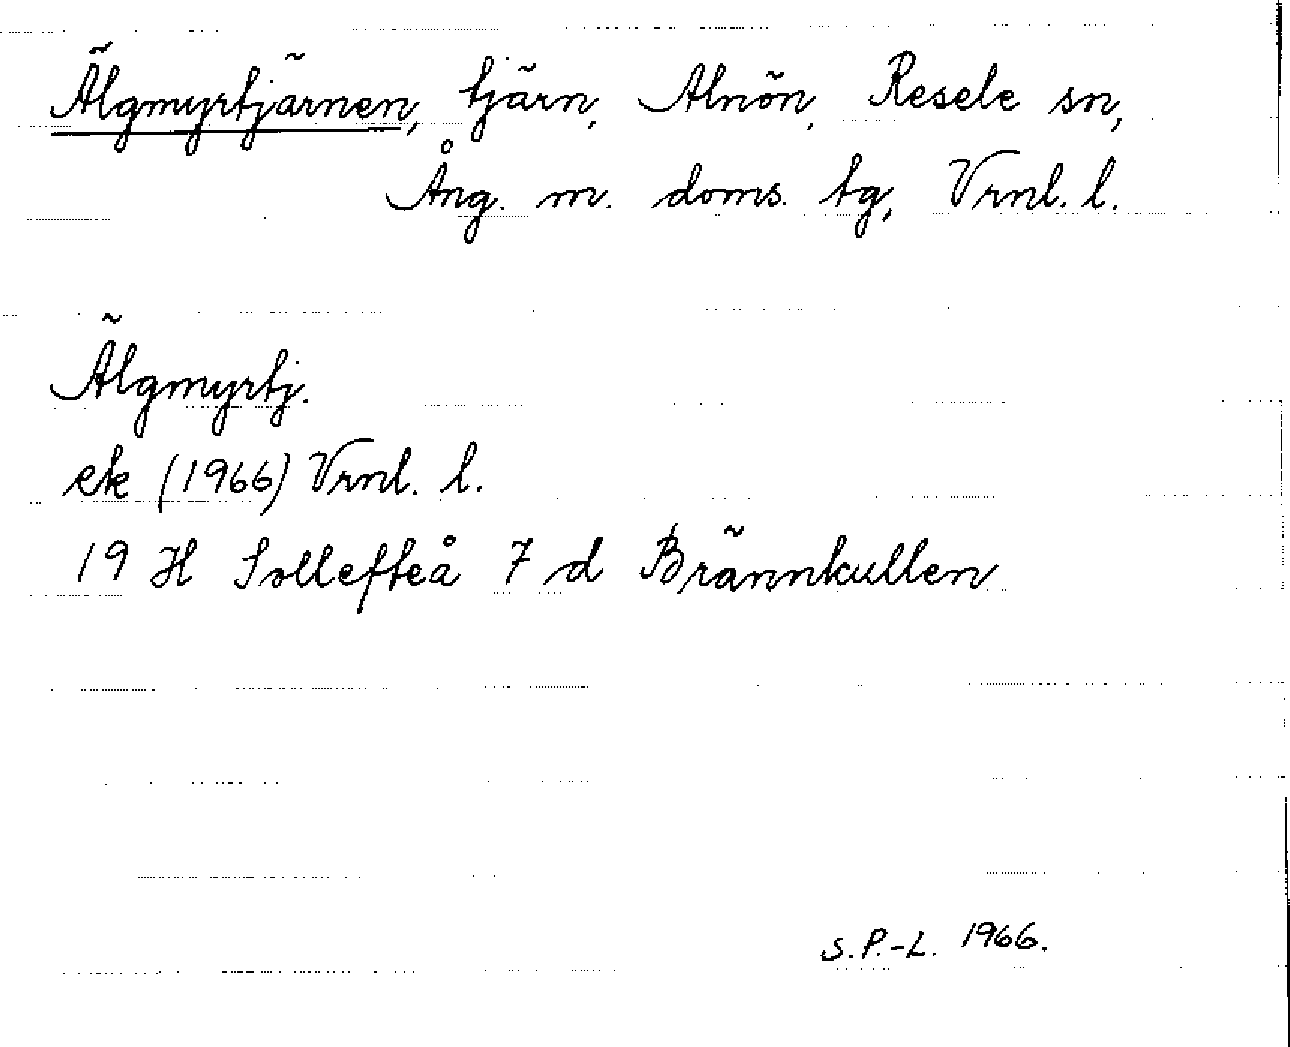 Älgmyrtjärnen, tjärn, Alnön, Resele sn,
Ång. m. doms. tg, Vrnl. l.
Älgmyrtj.
ek (1966) Vrnl. l.
19 H Sollefteå 7 d Brännkullen
S. P.-L. 1966.